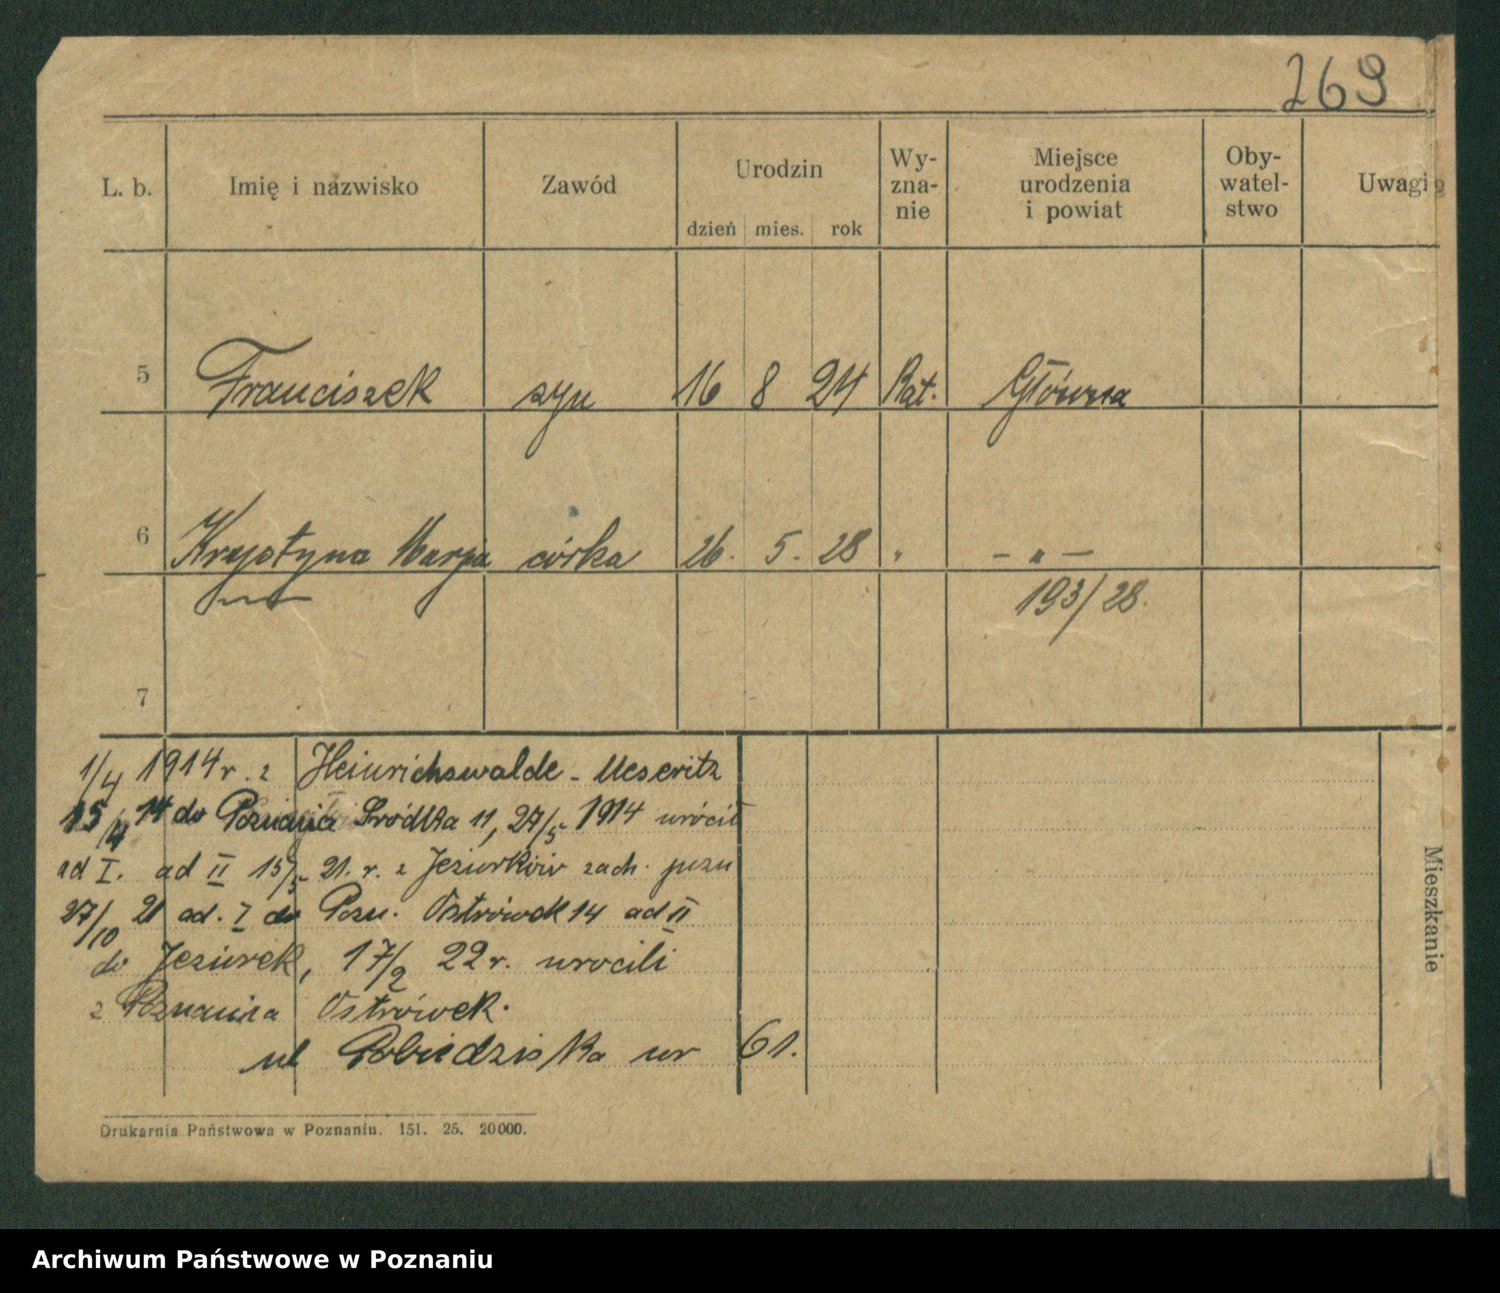 269
L. b. Imię i nazwisko Zawód Urodzin Wy-zna-nie Miejsce urodzenia i powiat Oby-watel-stwo Uwagi
dzień mies. rok
5 Franciszek syn 16 8 24 Kat. Główna
6 Krystyna Marja córka 26. 5. 28 " – " –
193/28.
7
1/4 1914 r. z Heinrichswalde - Meseritz
15/4 14 do Poznania Śródka 11, 27/5 1914 urócił
ad I. ad II 15/5 21. r. z Jeziorków zach. pozn
27/10 21 ad. I do Pozn. Ostrówek 14 ad II
do Jeziorek, 17/2 22 r. urocili
z Poznania Ostrówek.
ul Pobiedziska nr 61.
Mieszkanie
Drukarnia Państwowa w Poznaniu. 151. 25. 20000.
Archiwum Państwowe w Poznaniu